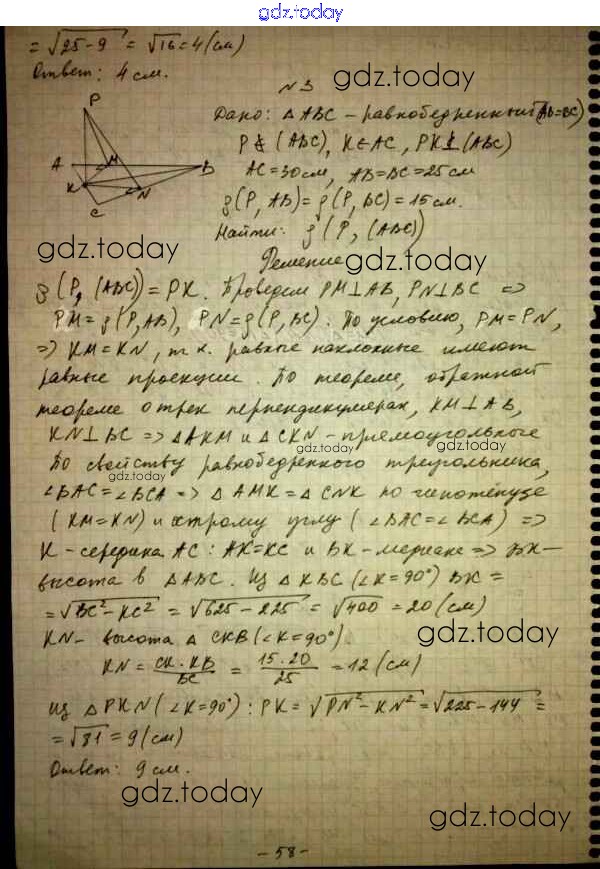 gdz.today
= √25-9 = √16 = 4 (см)
Ответ: 4 см.
№3
gdz.today
Дано: △ ABC - равнобедренный (AB=BC)
P ∉ (ABC), K ∈ AC, PK ⊥ (ABC)
AC = 30 см, AB = BC = 25 см
ρ(P, AB) = ρ(P, BC) = 15 см.
Найти: ρ(P, (ABC))
P
A
M
B
K
N
C
gdz.today
gdz.today
Решение
ρ(P, (ABC)) = PK. Проведем PM ⊥ AB, PN ⊥ BC =>
PM = ρ(P, AB), PN = ρ(P, BC). По условию, PM = PN,
=> KM = KN, т.к. равные наклонные имеют
равные проекции. По теореме, обратной
теореме о трех перпендикулярах, KM ⊥ AB,
KN ⊥ BC => △ AKM и △ CKN - прямоугольные
По свойству равнобедренного треугольника,
gdz.today
gdz.today
gdz.today
∠BAC = ∠BCA => △ AMK = △ CNK по гипотенузе
(KM = KN) и острому углу (∠BAC = ∠BCA) =>
K - середина AC: AK = KC и BK - медиана => BK -
высота в △ ABC. Из △ KBC (∠K = 90°) BK =
= √BC² - KC² = √625 - 225 = √400 = 20 (см)
KN - высота △ CKB (∠K = 90°).
gdz.today
KN = CK · KB / BC = 15 · 20 / 25 = 12 (см)
Из △ PKN (∠K = 90°): PK = √PN² - KN² = √225 - 144 =
= √81 = 9 (см)
Ответ: 9 см.
gdz.today
gdz.today
- 58 -